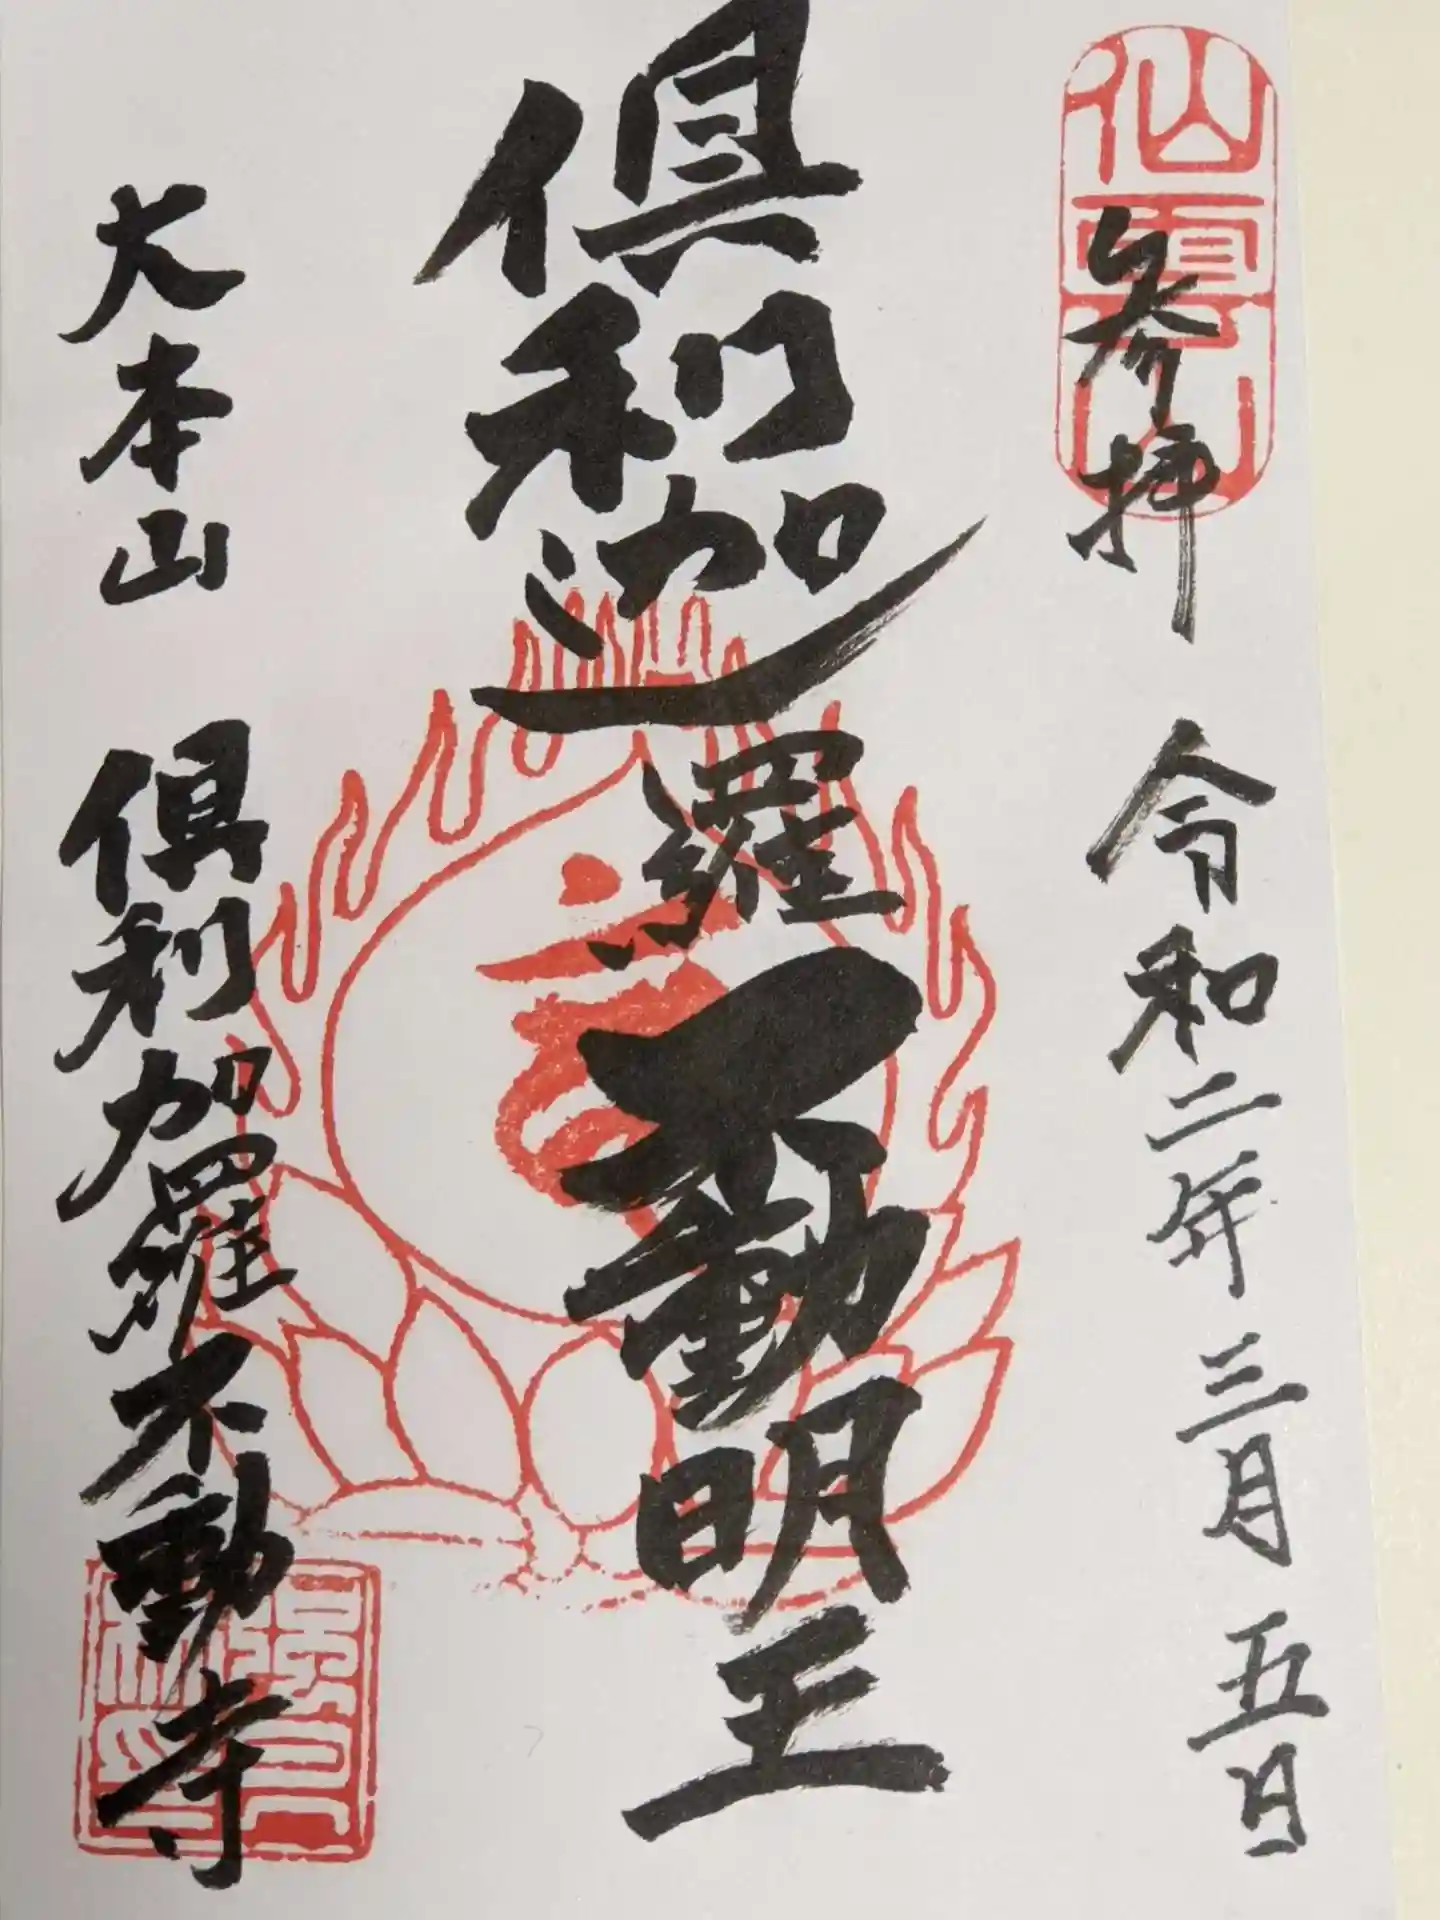 仙雲山
参拝 令和二年三月五日
倶利迦羅不動明王
大本山 倶利加羅不動寺